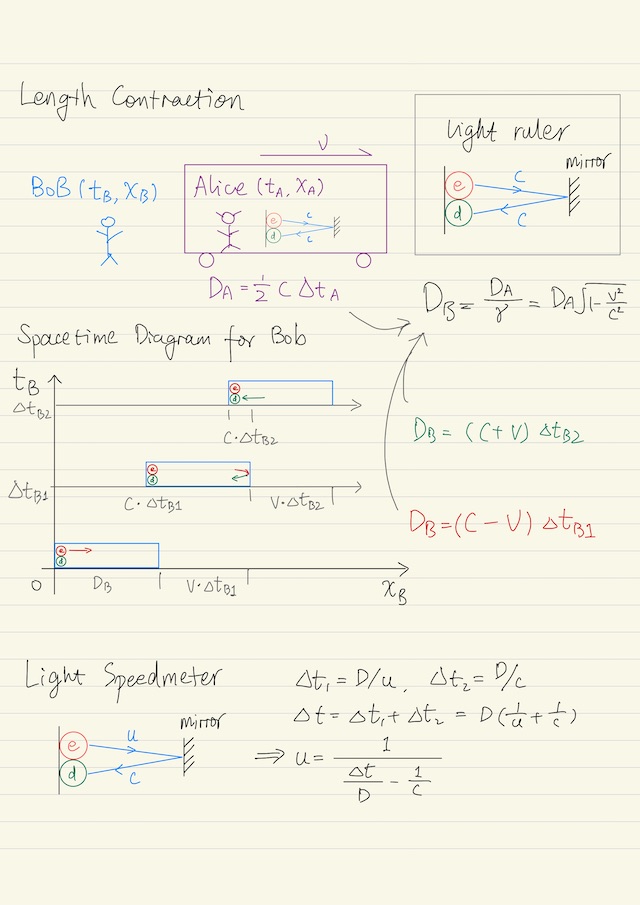 Length Contraction
light ruler
mirror
e
c
d
c
V
BoB (t_B, x_B)
Alice (t_A, x_A)
e
c
d
c
D_A = 1/2 C Δt_A
D_B = D_A/γ = D_A √(1 - V²/C²)
Spacetime Diagram for Bob
t_B
Δt_B2
e
d
C·Δt_B2
D_B = (C+V) Δt_B2
Δt_B1
e
d
C·Δt_B1
V·Δt_B2
D_B = (C-V) Δt_B1
e
d
O
D_B
V·Δt_B1
x_B
Light Speedmeter
Δt₁ = D/u, Δt₂ = D/c
Δt = Δt₁ + Δt₂ = D(1/u + 1/c)
mirror
e
u
d
c
⇒ u = 1/(Δt/D - 1/C)